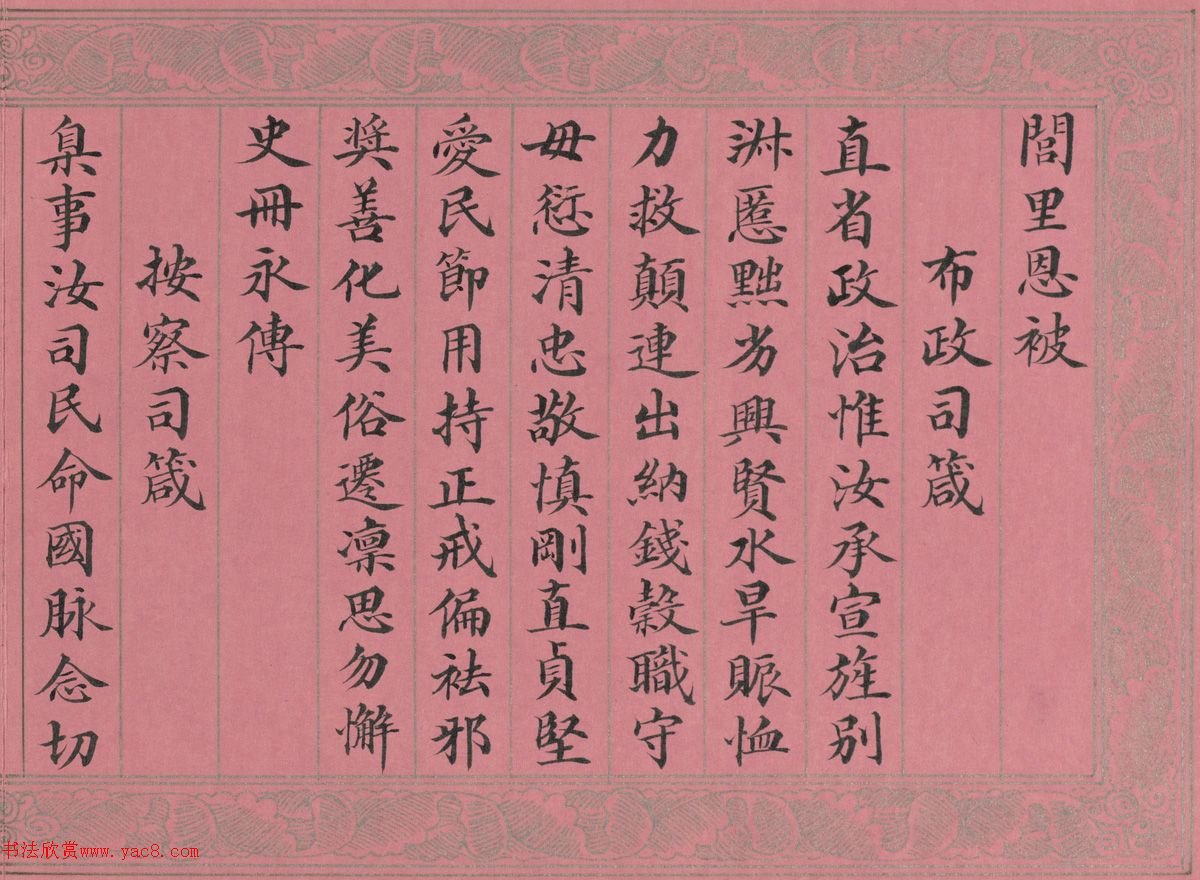 閭里恩被
布政司箴
直省政治惟汝承宣旌別
淋慝黜劣興賢水旱賑恤
力救顛連出納錢穀職守
毋愆清忠敬慎剛直貞堅
愛民節用持正戒偏袪邪
奬善化美俗遷凛思勿懈
史冊永傳
按察司箴
臬事汝司民命國脉念切
书法欣赏www.yac8.com